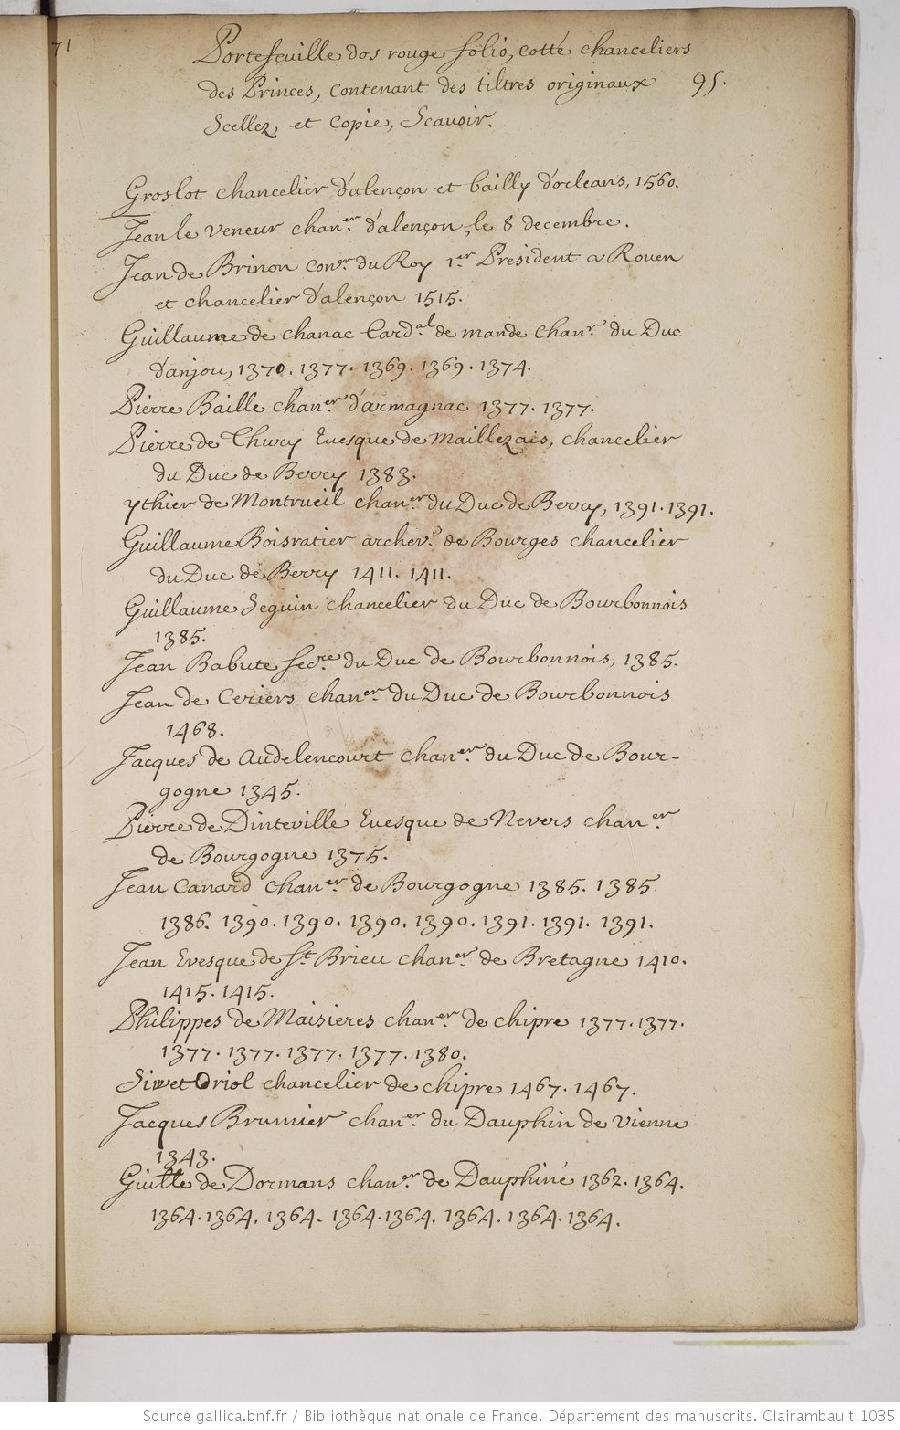 71
Portefeuille dos rouge folio, cotté chanceliers
des Princes, contenant des tiltres originaux 95.
Scellez, et Copie, Scavoir.
Groslot chancelier d'alençon et bailly d'orleans, 1560.
Jean le Veneur chan.er d'alençon, le 8 decembre.
Jean de Brinon Con.er du Roy 1.er President a Rouen
et chancelier d'alençon 1515.
Guillaume de chanac Card.al de mande Chan.r du Duc
d'anjou, 1370. 1377. 1369. 1369. 1374.
Pierre Baille chan.er d'armagnac. 1377. 1377.
Pierre de Thury Evesque de Maillezais, chancelier
du Duc de Berry 1383.
ythier de Montrueil chan.er du Duc de Berry, 1391. 1391.
Guillaume Boisratier archev.e de Bourges chancelier
du Duc de Berry 1411. 1411.
Guillaume Seguin chancelier du Duc de Bourbonnois
1385.
Jean Babute secre. du Duc de Bourbonnois, 1385.
Jean de Ceriers chan.er du Duc de Bourbonnois
1468.
Jacques de Audelencourt chan.er du Duc de Bour-
gogne 1345.
Pierre de Dinteville Evesque de Nevers chan.er
de Bourgogne 1375.
Jean Canard chan.er de Bourgogne 1385. 1385
1386. 1390. 1390. 1390. 1390. 1391. 1391. 1391.
Jean Evesque de St. Brieu chan.er de Bretagne 1410.
1415. 1415.
Philippes de Maisieres chan.er de chipre 1377. 1377.
1377. 1377. 1377. 1377. 1380.
Oriol chancelier de chipre 1467. 1467.
Jacques Brunier chan.er du Dauphin de Vienne
1343.
Guille de Dormans chan.er de Dauphiné 1362. 1364.
1364. 1364. 1364. 1364. 1364. 1364. 1364. 1364.
Source gallica.bnf.fr / Bibliothèque nationale de France. Département des manuscrits. Clairambault 1035